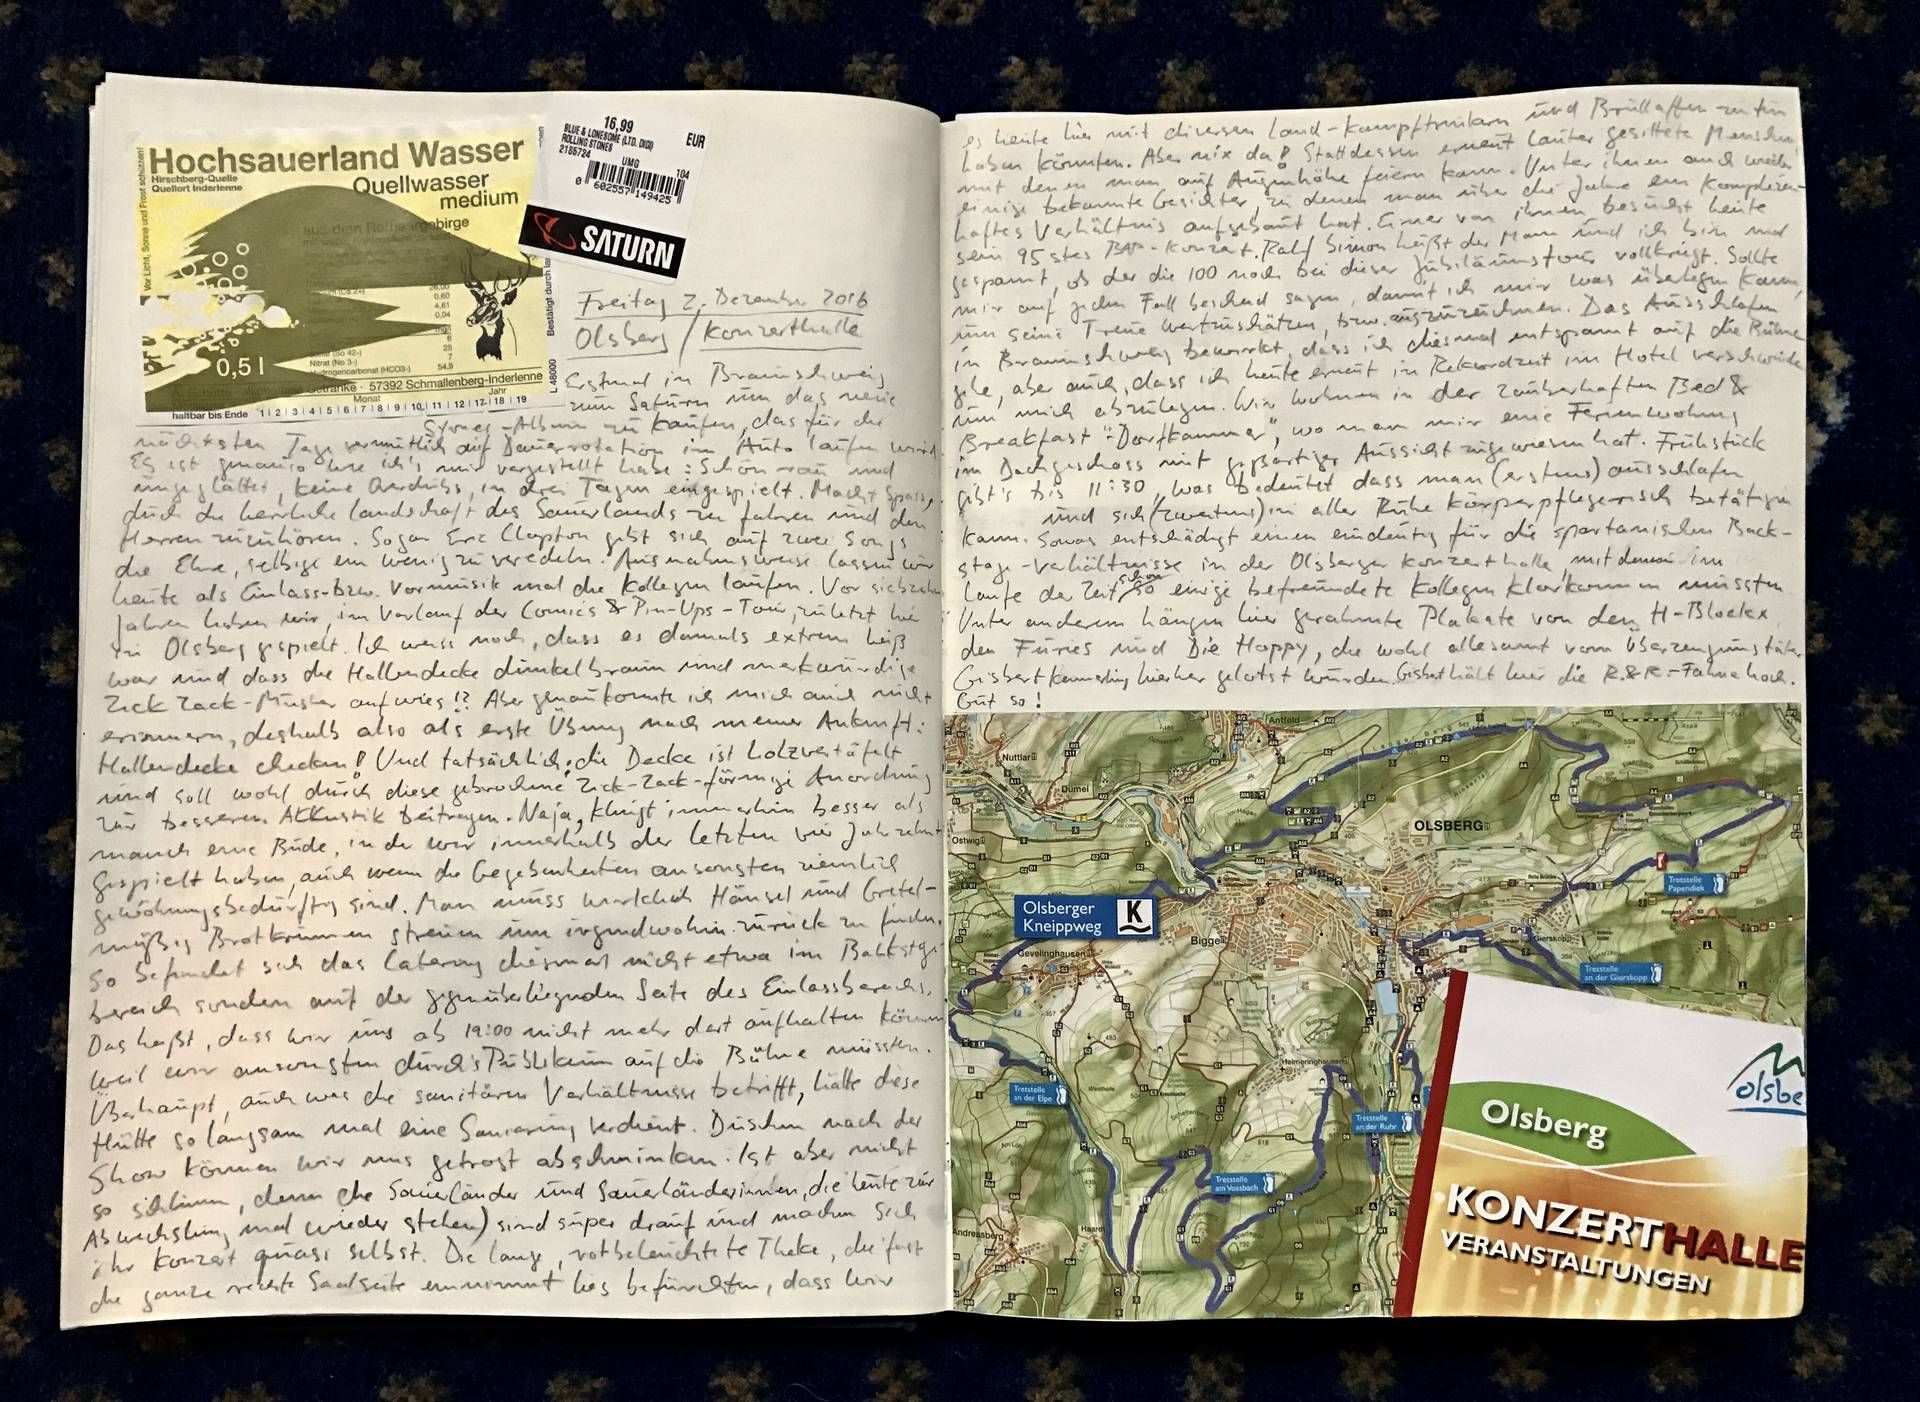 Hochsauerland Wasser
Hirschberg-Quelle
Quellort Inderlenne
Quellwasser
medium
aus dem Rothaargebirge
0,5 l
57392 Schmallenberg-Inderlenne
Monat
Jahr
haltbar bis Ende 1 2 3 4 5 6 7 8 9 10 11 12 17 18 19
L 48000
16,99
EUR
BLUE & LONESOME (LTD. DIGI)
ROLLING STONES
2185724
UMG
104
0 602557 149425
SATURN
Freitag 2. Dezember 2016
Olsberg / Konzerthalle
Erstmal in Braunschweig
zum Saturn um das neue
Stones-Album zu kaufen, das für die
nächsten Tage vermutlich auf Dauerrotation im Auto laufen wird.
Es ist genauso wie ich's mir vorgestellt habe: Schön rau und
ungeglättet, keine Overdubs, in drei Tagen eingespielt. Macht Spass,
durch die herrliche Landschaft des Sauerlands zu fahren und den
Herren zuzuhören. Sogar Eric Clapton gibt sich auf zwei Songs
die Ehre, selbige ein wenig zu veredeln. Ausnahmsweise lassen wir
heute als Einlass- bzw. Vormusik mal die Kollegen laufen. Vor siebzehn
Jahren haben wir, im Verlauf der Comics & Pin-Ups-Tour, zuletzt hier
in Olsberg gespielt. Ich weiss noch, dass es damals extrem heiß
war und dass die Hallendecke dunkelbraun und merkwürdige
Zick Zack-Muster aufwies!? Aber genau konnte ich mich auch nicht
erinnern, deshalb also als erste Übung nach meiner Ankunft:
Hallendecke checken! Und tatsächlich: die Decke ist holzvertäfelt
und soll wohl durch diese gebrochene Zick-Zack-förmige Anordnung
zur besseren Akkustik beitragen. Naja, klingt immerhin besser als
manch eine Bude, in der wir innerhalb der letzten vier Jahrzehnte
gespielt haben, auch wenn die Gegebenheiten ansonsten ziemlich
gewöhnungsbedürftig sind. Man muss wirklich Hänsel und Gretel-
mäßig Brotkrumen streuen um irgendwohin zurück zu finden.
So befindet sich das Catering diesmal nicht etwa im Backstage-
bereich sondern auf der gegenüberliegenden Seite des Einlassbereichs.
Das heißt, dass wir uns ab 19:00 nicht mehr dort aufhalten können
weil wir ansonsten durch's Publikum auf die Bühne müssten.
Überhaupt, auch was die sanitären Verhältnisse betrifft, hätte diese
Hütte so langsam mal eine Sanierung verdient. Duschen nach der
Show können wir uns getrost abschminken. Ist aber nicht
so schlimm, denn die Sauerländer und Sauerländerinnen, (die heute zur
Abwechslung mal wieder stehen) sind super drauf und machen sich
ihr Konzert quasi selbst. Die lange, rotbeleuchtete Theke, die fast
die ganze rechte Saalseite einnimmt lies befürchten, dass wir
es heute hier mit diversen Land-Kampftrinkern und Brüllaffen zu tun
haben könnten. Aber nix da! Stattdessen erneut lauter gesittete Menschen,
mit denen man auf Augenhöhe feiern kann. Unter ihnen auch wieder
einige bekannte Gesichter, zu denen man über die Jahre ein Kumpelhaftes
Verhältnis aufgebaut hat. Einer von ihnen besucht heute
sein 95stes BAP-Konzert. Ralf Simon heißt der Mann und ich bin mal
gespannt, ob der die 100 noch bei dieser Jubiläumstour vollkriegt. Sollte
mir auf jeden Fall bescheid sagen, damit ich mir was überlegen kann,
um seine Treue wertzuschätzen, bzw. auszuzeichnen. Das Ausschlafen
in Braunschweig bewirkt, dass ich diesmal entspannt auf die Bühne
gehe, aber auch, dass ich heute erneut in Rekordzeit im Hotel verschwinde
um mich abzulegen. Wir wohnen in der zauberhaften Bed &
Breakfast "Dorfkammer", wo man mir eine Ferienwohnung
im Dachgeschoss mit großartiger Aussicht zugewiesen hat. Frühstück
gibt's bis 11:30, was bedeutet dass man (erstens) ausschlafen
und sich (zweitens) in aller Ruhe körperpflegerisch betätigen
kann. Sowas entschädigt einen eindeutig für die spartanischen Back-
stage-Verhältnisse in der Olsberger Konzerthalle, mit denen im
Laufe der Zeit schon so einige befreundete Kollegen klarkommen mussten.
Unter anderem hängen hier gerahmte Plakate von den H-Blockx,
den Furies und Die Happy, die wohl allesamt vom Überzeugungstäter
Gisbert Kemmerling hierher gelotst wurden. Gisbert hält hier die R.&R.-Fahne hoch.
Gut so!
Antfeld
Nuttlar
Dumel
Ostwig
OLSBERG
Tretstelle
Papendiek
Olsberger
Kneippweg
K
Bigge
Gevelinghausen
Gierskopp
Tretstelle
an der Gierskopp
Helmeringhausen
Tretstelle
an der Elpe
Tretstelle
an der Ruhr
Tretstelle
am Vossbach
Andreasberg
olsbe
Olsberg
KONZERTHALLE
VERANSTALTUNGEN